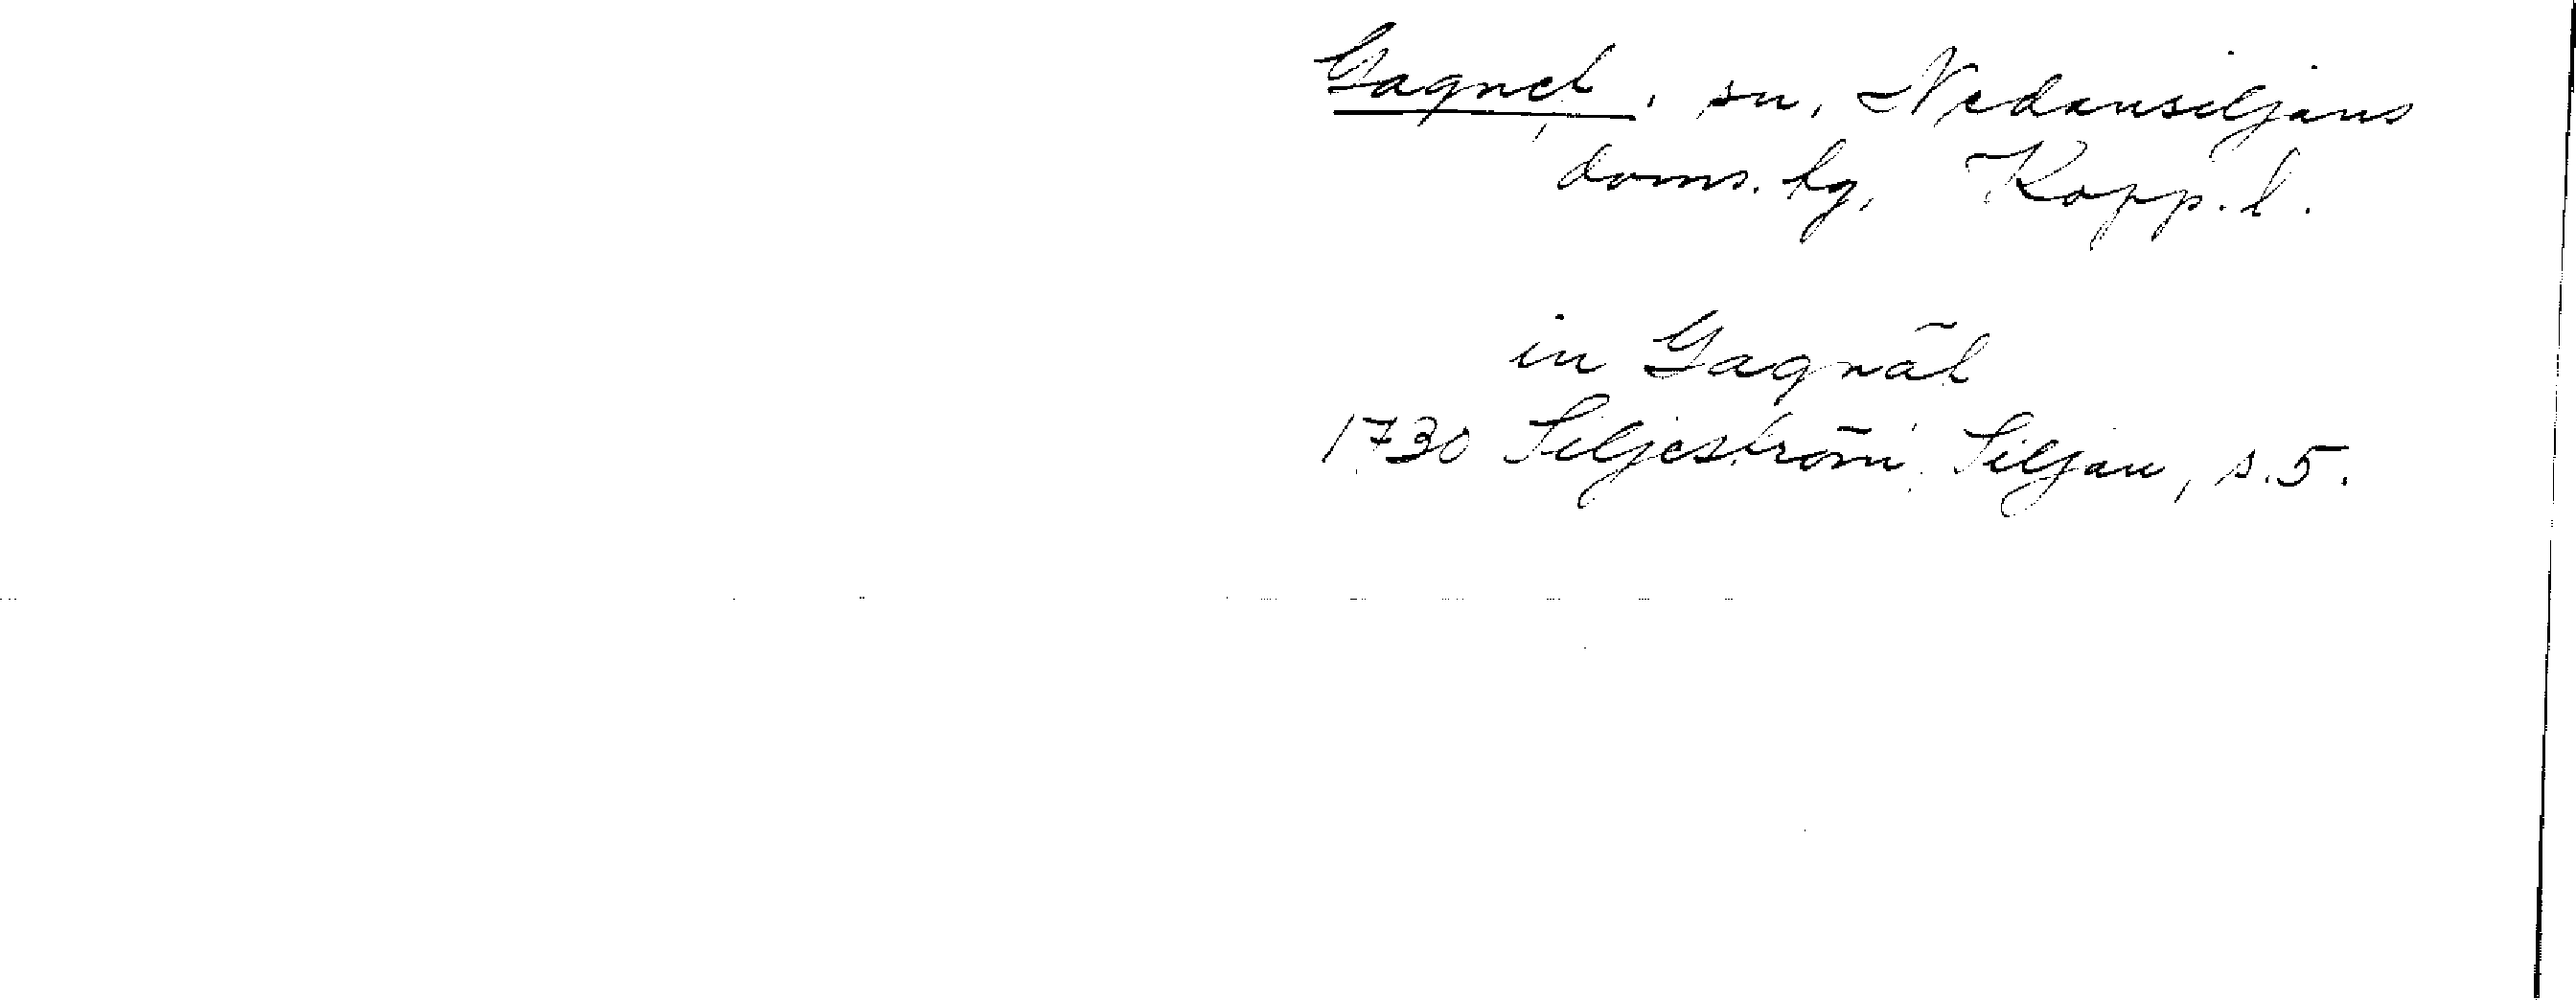 Gagnef, sn, Nedansiljans
doms. hg, Kopp. l.
in Gagnäf
1730 Siljeström, Siljan, s. 5.